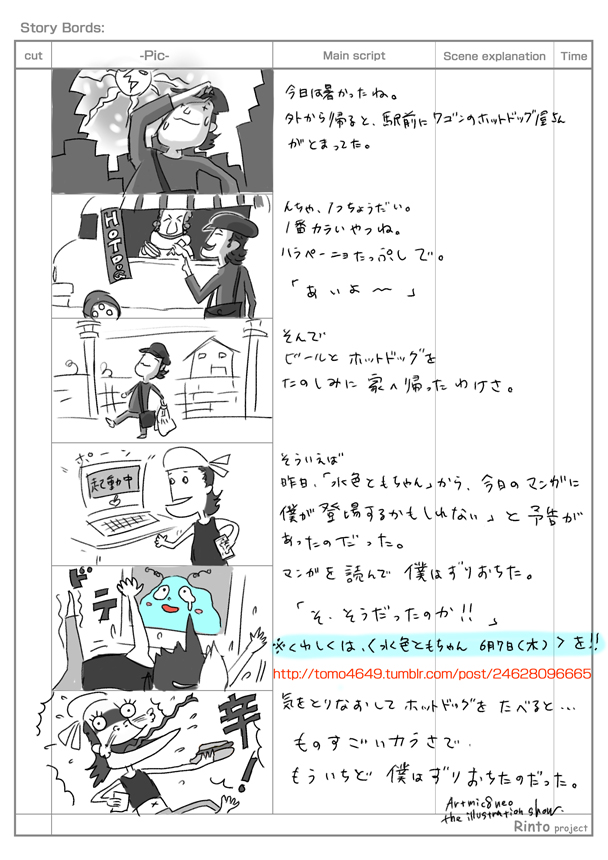 Story Bords:
cut
-Pic-
Main script
Scene explanation
Time
今日は暑かったね。
外から帰ると、駅前にワゴンのホットドッグ屋さん
がとまってた。
HOTDOG
んちゃ、1つちょうだい。
1番カラいやつね。
ハラペーニョたっぷしで。
「あいよ〜」
そんで
ビールとホットドッグを
たのしみに家へ帰ったわけさ。
ポーン
起動中
そういえば
昨日、「水色ともちゃん」から、今日のマンガに
僕が登場するかもしれない」と予告が
あったのだった。
マンガを読んで僕はずりおちた。
ドテ
「そ、そうだったのか!!」
※くわしくは、<水色ともちゃん 6月7日(木)>を!!
http://tomo4649.tumblr.com/post/24628096665
辛!
気をとりなおしてホットドッグをたべると…
ものすごいカラさで.
もういちど僕はずりおちたのだった。
Artmic8neo
the illustration show.
Rinto project